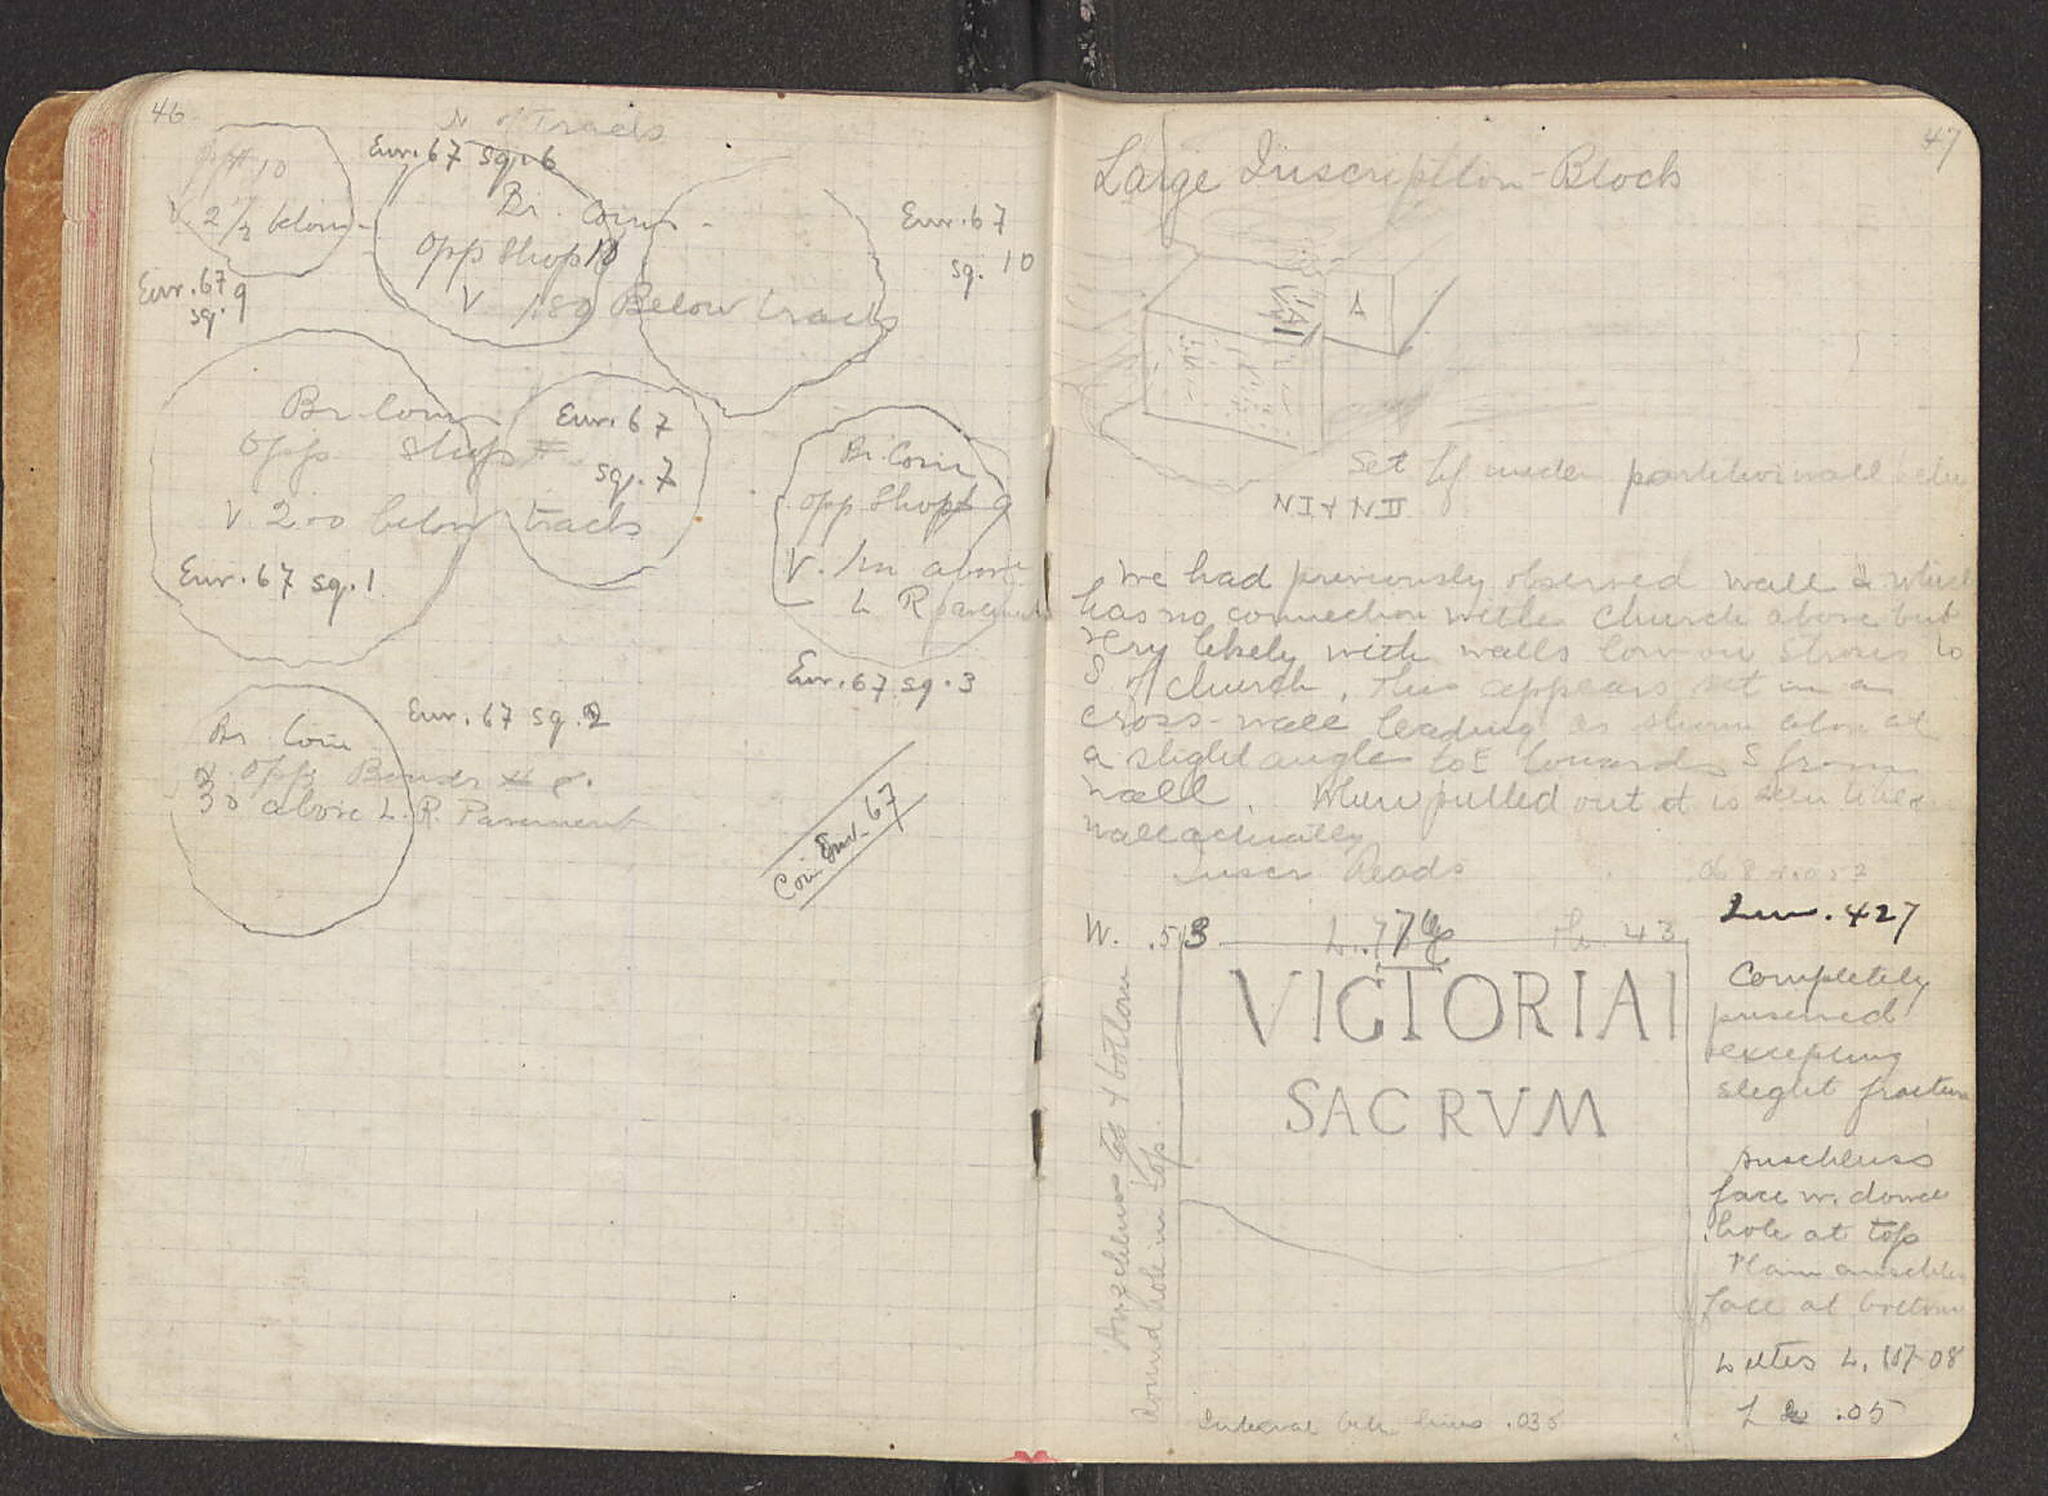 46
N of Tracks
Eur. 67 sq. 6
opp # 10
V. 2 1/3 below
Eur. 67
sq. 9
Br. Coin
Opp Shop 10
V 1.80 Below tracks
Eur. 67
sq. 10
Br. Coin
Opp. Shop #
V 2.00 below tracks
Eur. 67
sq. 7
Eur. 67 sq. 1
Br. Coin
Opp Shop 9
V. 1m above
L R pavement
Eur. 67 sq. 3
Br Coin
Eur. 67 sq. 2
Opp
30 above L. R. Pavement
Coin Env. 67
47
Large Inscription-Block
A
Set up under partition wall betw
N I + N II
We had previously observed wall a which
has no connection with Church above but
very likely with walls low on stones to
S of church. This appears set in a
cross-wall leading as shown above at
a slight angle to E towards S from
wall. When pulled out it is seen
wall actually
Inscr Reads
Inv. 427
W. .53 L. .77 Th. 43
VICTORIAI
SACRVM
Completely
preserved
excepting
slight fracture
Anschluss
face w. dowel
hole at top
Plain anschluss
face at bottom
Letters L. .07-08
.05
Anschluss top + bottom
round hole in top.
Interval betw lines .035